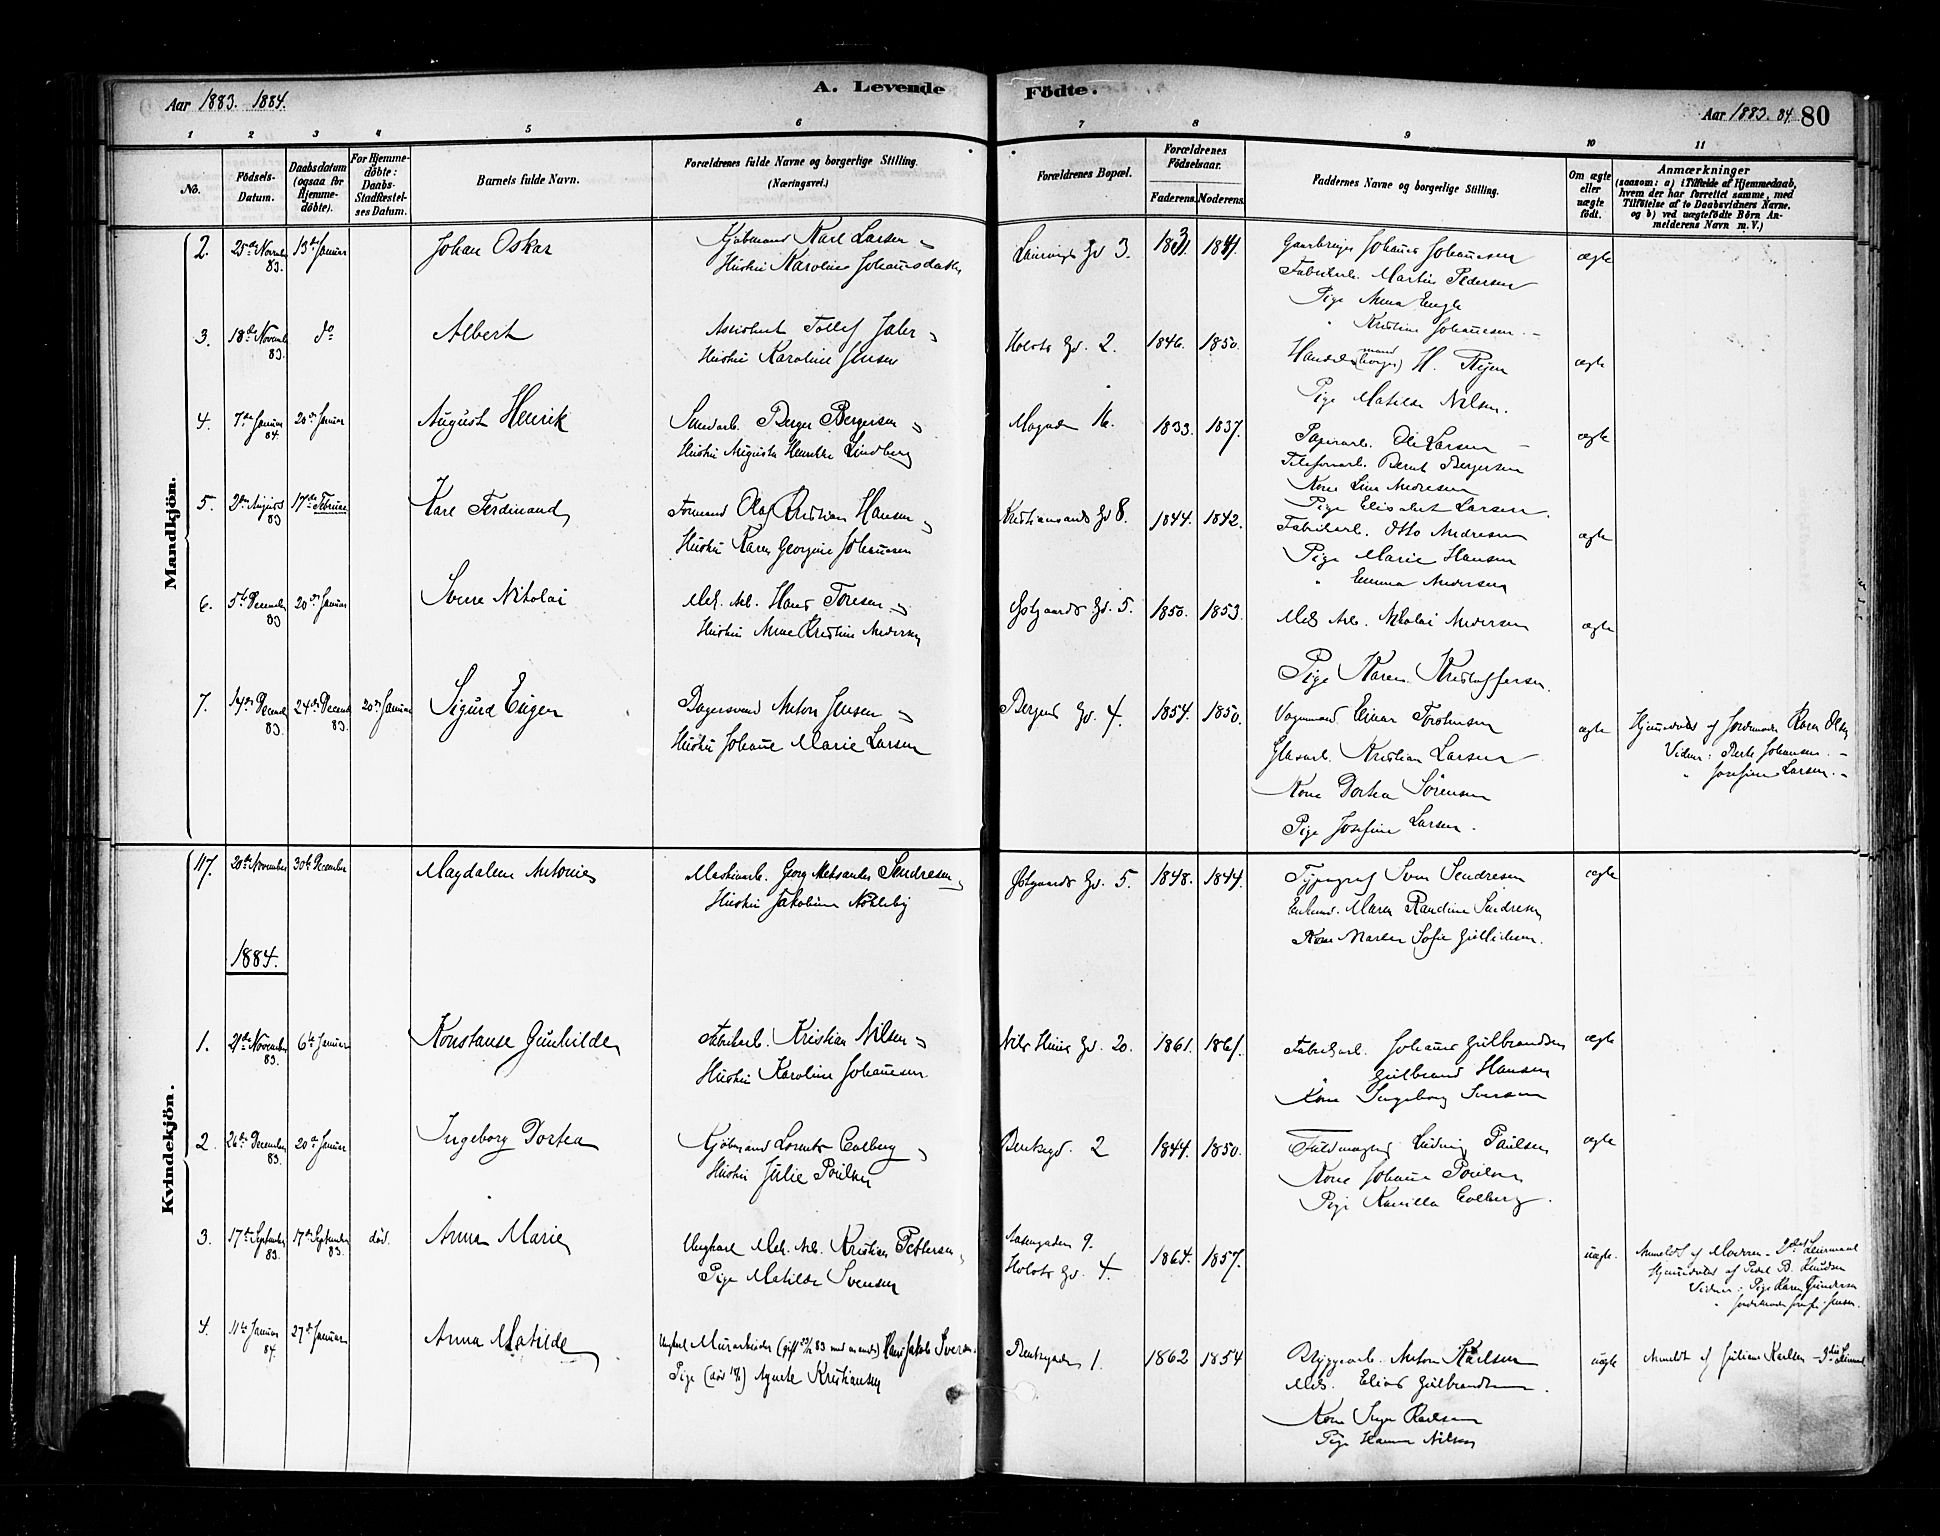 Aar 1883. 1884.
A. Levende
Födte.
Aar 1883. 84. 80
1 2 3 4 5 6 7 8 9 10 11
No.
Födsels-Datum.
Daabsdatum (ogsaa for Hjemme-döbte).
For Hjemme-döbte: Daabs-Stadfæstel-ses Datum.
Barnets fulde Navn.
Forældrenes fulde Navne og borgerlige Stilling.
(Næringsvei.)
Forældrenes Bopæl.
Forældrenes Födselsaar.
Faderens. Moderens.
Faddernes Navne og borgerlige Stilling.
Om ægte eller uægte födt.
Anmærkninger
(saasom: a) i Tilfælde af Hjemmedaab,
hvem der har forrettet samme, med
Tilföielse af to Daabsvidners Navne.
og b) ved uægtefödte Börn An-
melderens Navn m. V.)
Mandkjön.
2. 25de Novemb 83. 13de Januar Johan Oskar
Kjöbmand Karl Larsen
Hustru Karoline Johannsdatter
Gd 3. 1841.
Johannes Johannesen
Fabrikarb. Martin Pedersen
Pige Anna Engh
" Kristine Johannesen.
ægte
3. 18de Novemb 83. do Albert
Assistent Tollef
Hustru Karoline Jensen
Holsts Gd. 2. 1846. 1850.
Handels(borger) mand H.
Pige Matilde Nilsen.
ægte
4. 7de Januar 84. 20de Januar August Henrik
Berger Bergersen
Hustru Augusta Henrikke Lindberg
16. 1833. 1837.
Papirarb. Ole Larsen
Telefonarb. Bernt Bergersen
Kone Lina Andresen
Pige Elisabet Larsen.
ægte
5. 2den August 83 17de Februar Karl Ferdinand
Formand Olaf Kristian Hansen
Hustru Karen Georgine Johannesen
Kristiansands Gd 8. 1844. 1842.
Fabrikarb. Otto Andresen
Pige Marie Hansen
" Emma Andersen
ægte
6. 5te December 83 20de Januar Sverre Nikolai
Mek. Arb. Hans Toresen
Hustru Anne Kristine Andersen
Østgaards Gd. 5. 1850. 1853.
Mek Arb. Nikolai Andersen
Pige Karen Kristoffersen.
ægte
7. 14de Decemb 83. 24de Decemb 83. 20de Januar Sigurd Eugen
Bagersvend Anton Jensen
Hustru Johanne Marie Larsen
Bergens Gd. 4. 1854. 1850.
Vognmand Einar Torstensen
Glasarb. Kristian Larsen
Kone Dortea Sörensen
Pige Josefine Larsen.
ægte
Hjemmedøbt af Jordemoder Karen Olsen
Vidner: Berte Johansen.
" Josefine Larsen.
Kvindekjön.
117. 20de November 30te December Magdalene Antonie
Maskinarb. Georg Aleksander Sendresen
Hustru Jakobine Nohleby
Østgaards Gd. 5. 1848. 1844.
Typograf Sven Sendresen
Enkemd. Maren Randine Sendresen
Kone Maren Sofie Gullichsen.
ægte
1884.
1. 21de November 83. 6te Januar Konstanse Gunhilde
Fabrikarb. Kristian Nilsen
Hustru Karoline Johannesen
Nils Huus Gd. 20. 1861. 1861.
Fabrikarb. Johannes Gulbrandsen
Gulbrand Hansen
Kone Ingeborg
ægte
2. 26de December 83. 20de Januar Ingeborg Dortea
Kjöbmand Lorents Colberg
Hustru Julie Poulsen
Bentsegd. 2 1844. 1850.
Fuldmægtig Ludvig Paulsen
Kone Johanne Poulsen
Pige Kamilla Colberg.
ægte
3. 17de September 83. 17de September 83. död. Anna Marie
Ungkarl Mek. Arb. Kristian Pettersen
Pige Matilde Svensen
9.
Holsts Gd. 4. 1864. 1857.
uægte.
Anmeldt af Moderen - 2det Leiermaal
Hjemmedøbt af Petel B. Knudsen
Vidner: Pige Karen Gundersen
4. 11te Januar 84. 27de Januar Anna Matilde
Ungkarl Murarbeider (gift 83 med anden) Hans Jakob Iversen
Pige (död) Agnete Kristiansen
Bentsegaden 1. 1862 1854
Bryggearb. Anton Karlsen
Mek. Elias Gulbrandsen.
Kone Inga Karlsen
Pige Hanna Nilsen
uægte
Anmeldt af Juliane Karlsen